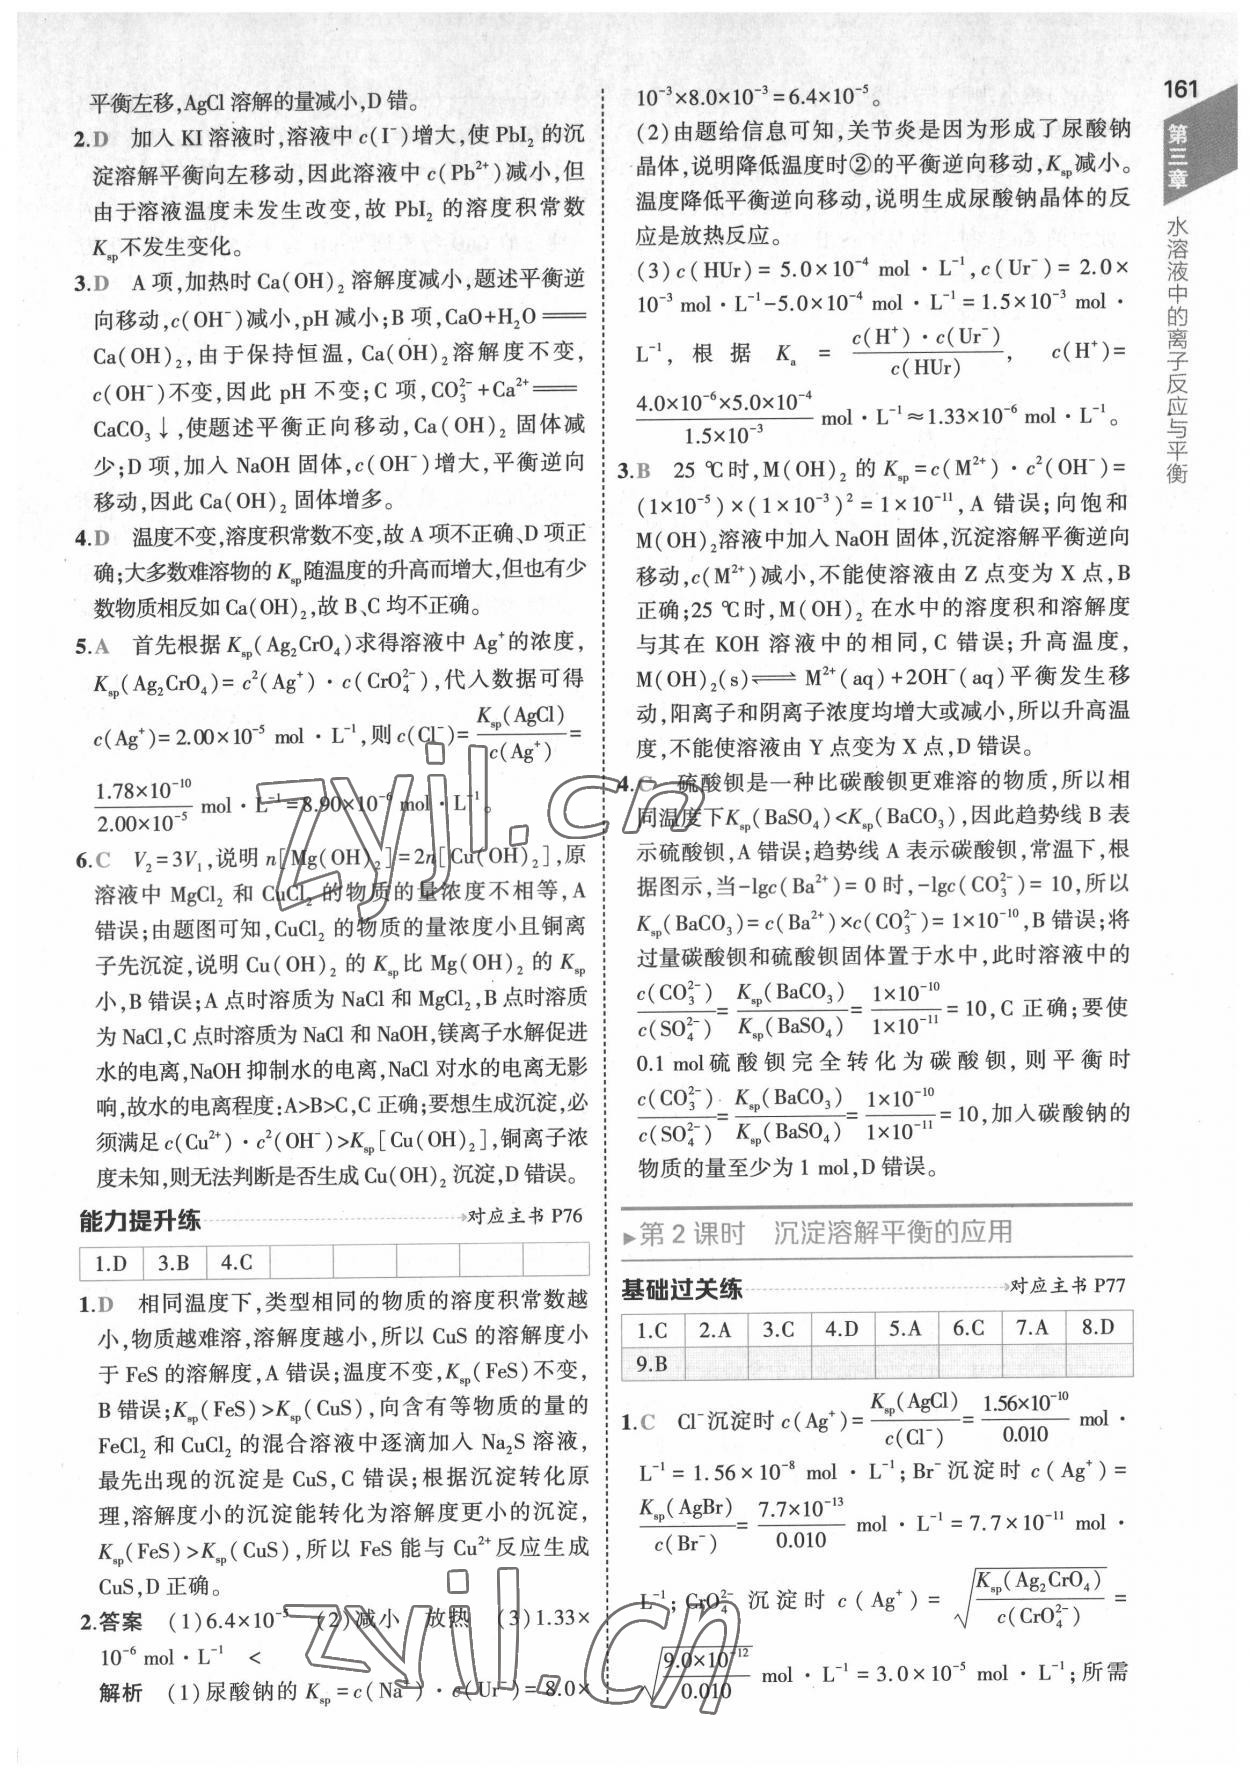 平衡左移,AgCl 溶解的量减小,D 错。
2.D 加入 KI 溶液时,溶液中 c(I⁻)增大,使 PbI₂ 的沉
淀溶解平衡向左移动,因此溶液中 c(Pb²⁺)减小,但
由于溶液温度未发生改变,故 PbI₂ 的溶度积常数
Ksp不发生变化。
3.D A 项,加热时 Ca(OH)₂ 溶解度减小,题述平衡逆
向移动,c(OH⁻)减小,pH 减小;B 项,CaO+H₂O══
Ca(OH)₂,由于保持恒温,Ca(OH)₂溶解度不变,
c(OH⁻)不变,因此 pH 不变;C 项,CO₃²⁻+Ca²⁺══
CaCO₃↓,使题述平衡正向移动,Ca(OH)₂ 固体减
少;D 项,加入 NaOH 固体,c(OH⁻)增大,平衡逆向
移动,因此 Ca(OH)₂ 固体增多。
4.D 温度不变,溶度积常数不变,故 A 项不正确、D 项正
确;大多数难溶物的 Ksp随温度的升高而增大,但也有少
数物质相反如 Ca(OH)₂,故 B、C 均不正确。
5.A 首先根据 Ksp(Ag₂CrO₄)求得溶液中 Ag⁺的浓度,
Ksp(Ag₂CrO₄)= c²(Ag⁺)·c(CrO₄²⁻),代入数据可得
c(Ag⁺)= 2.00×10⁻⁵ mol·L⁻¹,则 c(Cl⁻)= Ksp(AgCl)/c(Ag⁺) =
1.78×10⁻¹⁰/2.00×10⁻⁵ mol·L⁻¹=8.90×10⁻⁶ mol·L⁻¹。
6.C V₂=3V₁,说明 n[Mg(OH)₂]=2n[Cu(OH)₂],原
溶液中 MgCl₂ 和 CuCl₂ 的物质的量浓度不相等,A
错误;由题图可知,CuCl₂ 的物质的量浓度小且铜离
子先沉淀,说明 Cu(OH)₂ 的 Ksp比 Mg(OH)₂ 的 Ksp
小,B 错误;A 点时溶质为 NaCl 和 MgCl₂,B 点时溶质
为 NaCl,C 点时溶质为 NaCl 和 NaOH,镁离子水解促进
水的电离,NaOH 抑制水的电离,NaCl 对水的电离无影
响,故水的电离程度:A>B>C,C 正确;要想生成沉淀,必
须满足 c(Cu²⁺)·c²(OH⁻)>Ksp[Cu(OH)₂],铜离子浓
度未知,则无法判断是否生成 Cu(OH)₂ 沉淀,D 错误。
能力提升练 对应主书 P76
1.D 3.B 4.C
1.D 相同温度下,类型相同的物质的溶度积常数越
小,物质越难溶,溶解度越小,所以 CuS 的溶解度小
于 FeS 的溶解度,A 错误;温度不变,Ksp(FeS)不变,
B 错误;Ksp(FeS)>Ksp(CuS),向含有等物质的量的
FeCl₂ 和 CuCl₂ 的混合溶液中逐滴加入 Na₂S 溶液,
最先出现的沉淀是 CuS,C 错误;根据沉淀转化原
理,溶解度小的沉淀能转化为溶解度更小的沉淀,
Ksp(FeS)>Ksp(CuS),所以 FeS 能与 Cu²⁺反应生成
CuS,D 正确。
2.答案 (1)6.4×10⁻⁵ (2)减小 放热 (3)1.33×
10⁻⁶ mol·L⁻¹ <
解析 (1)尿酸钠的 Ksp=c(Na⁺)·c(Ur⁻)=8.0×
10⁻³×8.0×10⁻³=6.4×10⁻⁵。
(2)由题给信息可知,关节炎是因为形成了尿酸钠
晶体,说明降低温度时②的平衡逆向移动,Ksp减小。
温度降低平衡逆向移动,说明生成尿酸钠晶体的反
应是放热反应。
(3)c(HUr)= 5.0×10⁻⁴ mol·L⁻¹,c(Ur⁻)= 2.0×
10⁻³ mol·L⁻¹-5.0×10⁻⁴ mol·L⁻¹=1.5×10⁻³ mol·
L⁻¹,根据 Ka = c(H⁺)·c(Ur⁻)/c(HUr),c(H⁺)=
4.0×10⁻⁶×5.0×10⁻⁴/1.5×10⁻³ mol·L⁻¹≈1.33×10⁻⁶ mol·L⁻¹。
3.B 25 ℃时,M(OH)₂ 的 Ksp=c(M²⁺)·c²(OH⁻)=
(1×10⁻⁵)×(1×10⁻³)²=1×10⁻¹¹,A 错误;向饱和
M(OH)₂溶液中加入 NaOH 固体,沉淀溶解平衡逆向
移动,c(M²⁺)减小,不能使溶液由 Z 点变为 X 点,B
正确;25 ℃时,M(OH)₂ 在水中的溶度积和溶解度
与其在 KOH 溶液中的相同,C 错误;升高温度,
M(OH)₂(s)⇌ M²⁺(aq)+2OH⁻(aq)平衡发生移
动,阳离子和阴离子浓度均增大或减小,所以升高温
度,不能使溶液由 Y 点变为 X 点,D 错误。
4.C 硫酸钡是一种比碳酸钡更难溶的物质,所以相
同温度下Ksp(BaSO₄)<Ksp(BaCO₃),因此趋势线 B 表
示硫酸钡,A 错误;趋势线 A 表示碳酸钡,常温下,根
据图示,当-lgc(Ba²⁺)= 0 时,-lgc(CO₃²⁻)= 10,所以
Ksp(BaCO₃)=c(Ba²⁺)×c(CO₃²⁻)= 1×10⁻¹⁰,B 错误;将
过量碳酸钡和硫酸钡固体置于水中,此时溶液中的
c(CO₃²⁻)/c(SO₄²⁻) = Ksp(BaCO₃)/Ksp(BaSO₄) = 1×10⁻¹⁰/1×10⁻¹¹ = 10,C 正确;要使
0.1 mol 硫酸钡完全转化为碳酸钡,则平衡时
c(CO₃²⁻)/c(SO₄²⁻) = Ksp(BaCO₃)/Ksp(BaSO₄) = 1×10⁻¹⁰/1×10⁻¹¹ = 10,加入碳酸钠的
物质的量至少为 1 mol,D 错误。
第 2 课时 沉淀溶解平衡的应用
基础过关练 对应主书 P77
1.C 2.A 3.C 4.D 5.A 6.C 7.A 8.D
9.B
1.C Cl⁻沉淀时 c(Ag⁺)= Ksp(AgCl)/c(Cl⁻) = 1.56×10⁻¹⁰/0.010 mol·
L⁻¹=1.56×10⁻⁸ mol·L⁻¹;Br⁻沉淀时 c(Ag⁺)=
Ksp(AgBr)/c(Br⁻) = 7.7×10⁻¹³/0.010 mol·L⁻¹=7.7×10⁻¹¹ mol·
L⁻¹;CrO₄²⁻沉淀时 c(Ag⁺)= √(Ksp(Ag₂CrO₄)/c(CrO₄²⁻)) =
√(9.0×10⁻¹²/0.010) mol·L⁻¹=3.0×10⁻⁵ mol·L⁻¹;所需
161
第三章
水溶液中的离子反应与平衡
zyjl.cn
zyjl.cn